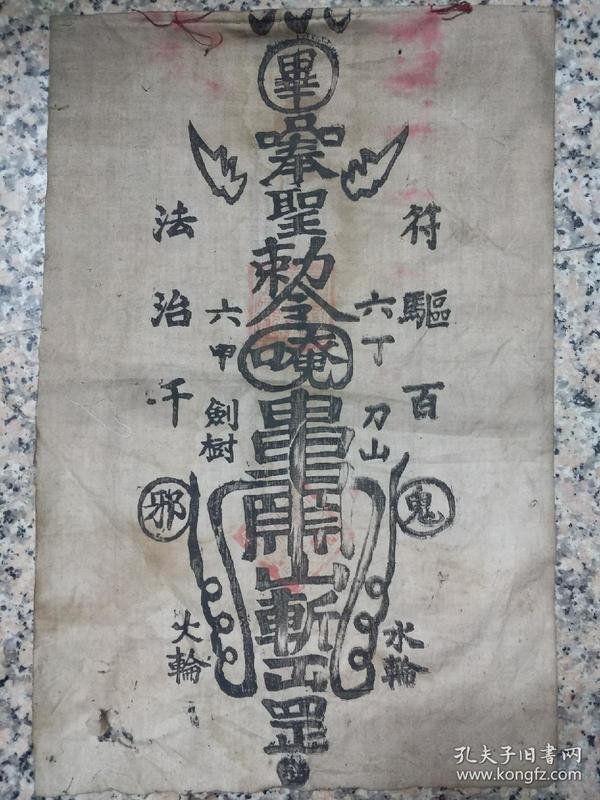 畢
奉聖勅令唵
斬
罡
符驅百鬼
法治千邪
六丁
六甲
刀山
劍樹
水輪
火輪
孔夫子旧书网
www.kongfz.com